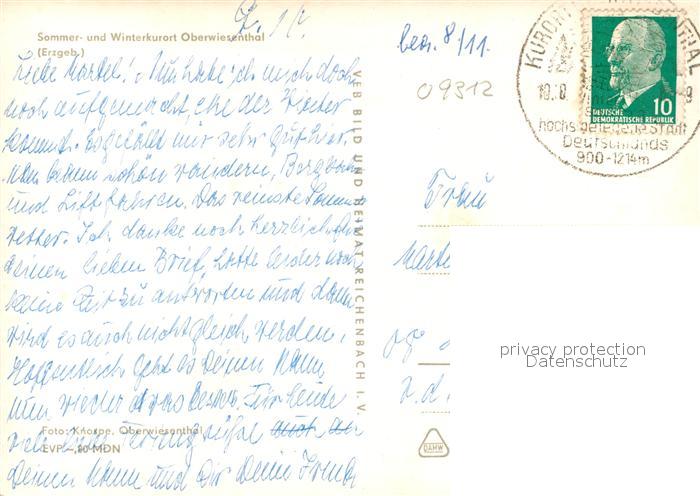 Z. 1/.
Sommer- und Winterkurort Oberwiesenthal
(Erzgeb.)
Liebe Martel! Nun habe ich mich doch
noch aufgemacht, ehe der Winter
kommt. Es gefällt mir sehr gut hier.
Man kann schön wandern, Bergbahn
und Lift fahren. Das reinste Sommer
wetter. Ich danke noch herzlich für
deinen lieben Brief, hatte leider noch
keine Zeit zu antworten und dann
wird es auch nicht gleich werden.
Hoffentlich geht es Deinem Mann
nun wieder etwas besser. Für heute
viele liebe Feriengrüße auch an
Deinen Mann und Dir Deine
Foto: Knorpe, Oberwiesenthal
EVP -,20 MDN
VEB BILD UND HEIMAT REICHENBACH I. V.
beo. 8/11.
09312
KURORT
THAL
10
DEUTSCHE
DEMOKRATISCHE REPUBLIK
höchstgelegene Stadt
Deutschlands
900-1214m
Frau
Marte
privacy protection
Datenschutz
DAHW